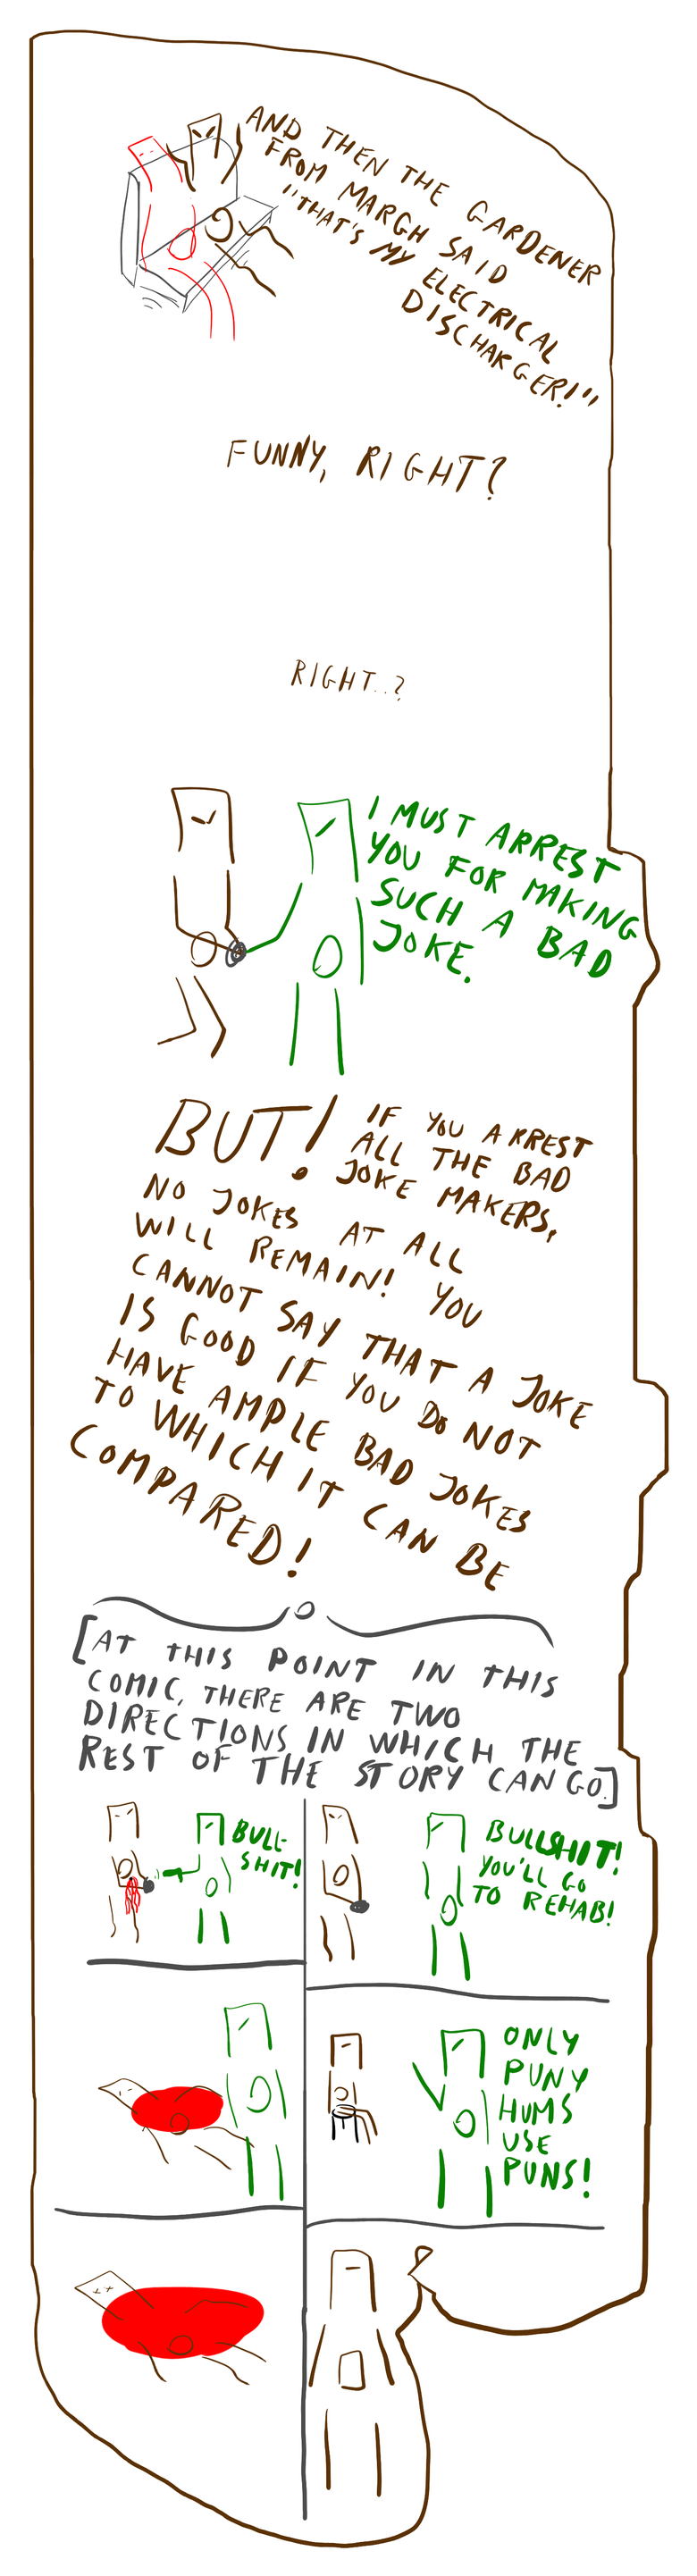 AND THEN THE GARDENER
FROM MARGH SAID
"THAT'S MY ELECTRICAL
DISCHARGER!"
FUNNY, RIGHT?
RIGHT..?
I MUST ARREST
YOU FOR MAKING
SUCH A BAD
JOKE.
BUT! IF YOU ARREST
ALL THE BAD
JOKE MAKERS,
NO JOKES AT ALL
WILL REMAIN! YOU
CANNOT SAY THAT A JOKE
IS GOOD IF YOU DO NOT
HAVE AMPLE BAD JOKES
TO WHICH IT CAN BE
COMPARED!
[AT THIS POINT IN THIS
COMIC, THERE ARE TWO
DIRECTIONS IN WHICH THE
REST OF THE STORY CAN GO.]
BULL-
SHIT!
BULLSHIT!
YOU'LL GO
TO REHAB!
ONLY
PUNY
HUMS
USE
PUNS!